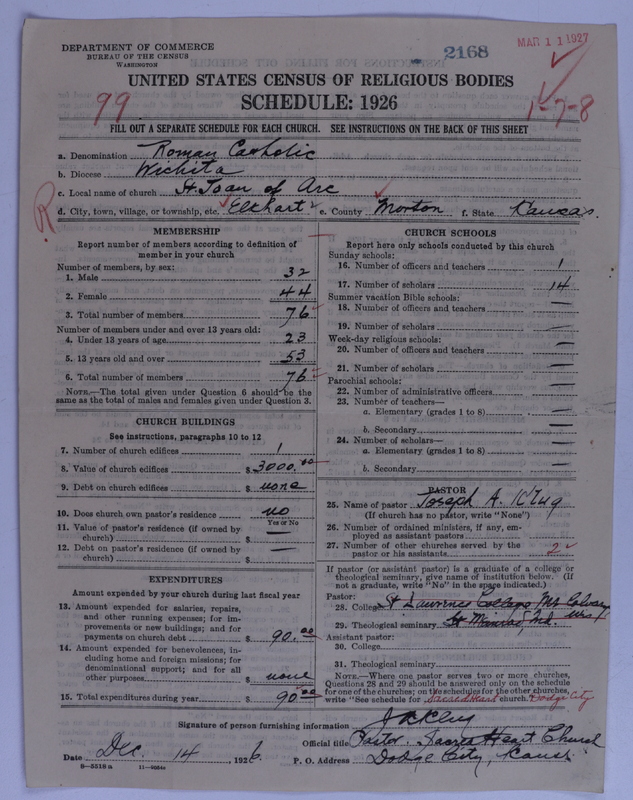 DEPARTMENT OF COMMERCE
BUREAU OF THE CENSUS
WASHINGTON
2168
MAR 11 1927
UNITED STATES CENSUS OF RELIGIOUS BODIES
99
SCHEDULE: 1926
1-7-8
FILL OUT A SEPARATE SCHEDULE FOR EACH CHURCH. SEE INSTRUCTIONS ON THE BACK OF THIS SHEET
a. Denomination Roman Catholic
b. Diocese Wichita
c. Local name of church St Joan of Arc
R
d. City, town, village, or township, etc. Elkhart e. County Morton f. State Kansas.
MEMBERSHIP
Report number of members according to definition of
member in your church
Number of members, by sex:
1. Male 32
2. Female 44
3. Total number of members 76
Number of members under and over 13 years old:
4. Under 13 years of age 23
5. 13 years old and over 53
6. Total number of members 76
NOTE.—The total given under Question 6 should be
same as the total of males and females given under Question 3.
CHURCH BUILDINGS
See instructions, paragraphs 10 to 12
7. Number of church edifices 1
8. Value of church edifices $ 3000.00
9. Debt on church edifices $ none
10. Does church own pastor's residence no
Yes or No
11. Value of pastor's residence (if owned by
church) $ —
12. Debt on pastor's residence (if owned by
church) $ —
EXPENDITURES
Amount expended by your church during last fiscal year
13. Amount expended for salaries, repairs,
and other running expenses; for im-
provements or new buildings; and for
payments on church debt $ 90.00
14. Amount expended for benevolences, in-
cluding home and foreign missions; for
denominational support; and for all
other purposes $ none
15. Total expenditures during year $ 90.00
CHURCH SCHOOLS
Report here only schools conducted by this church
Sunday schools:
16. Number of officers and teachers 1
17. Number of scholars 14
Summer vacation Bible schools:
18. Number of officers and teachers —
19. Number of scholars —
Week-day religious schools:
20. Number of officers and teachers —
21. Number of scholars —
Parochial schools:
22. Number of administrative officers —
23. Number of teachers—
a. Elementary (grades 1 to 8) —
b. Secondary —
24. Number of scholars—
a. Elementary (grades 1 to 8) —
b. Secondary —
PASTOR
25. Name of pastor Joseph A. Klug
(If church has no pastor, write "None")
26. Number of ordained ministers, if any, em-
ployed as assistant pastors
27. Number of other churches served by the
pastor or his assistants 2
If pastor (or assistant pastor) is a graduate of a college or
theological seminary, give name of institution below. (If
not a graduate, write "No" in the space indicated.)
Pastor:
28. College St Lawrence College Mt Calvary
Wis
29. Theological seminary St Meinrad, Ind.
Assistant pastor:
30. College
31. Theological seminary
NOTE.—Where one pastor serves two or more churches,
Questions 28 and 29 should be answered only on the schedule
for one of the churches; on the schedules for the other churches,
write "See schedule for Sacred Heart church. Dodge City
Signature of person furnishing information J A Klug
Official title Pastor. Sacred Heart Church
Date Dec. 14, 1926.
P. O. Address Dodge City, Kans.
8—5518 a